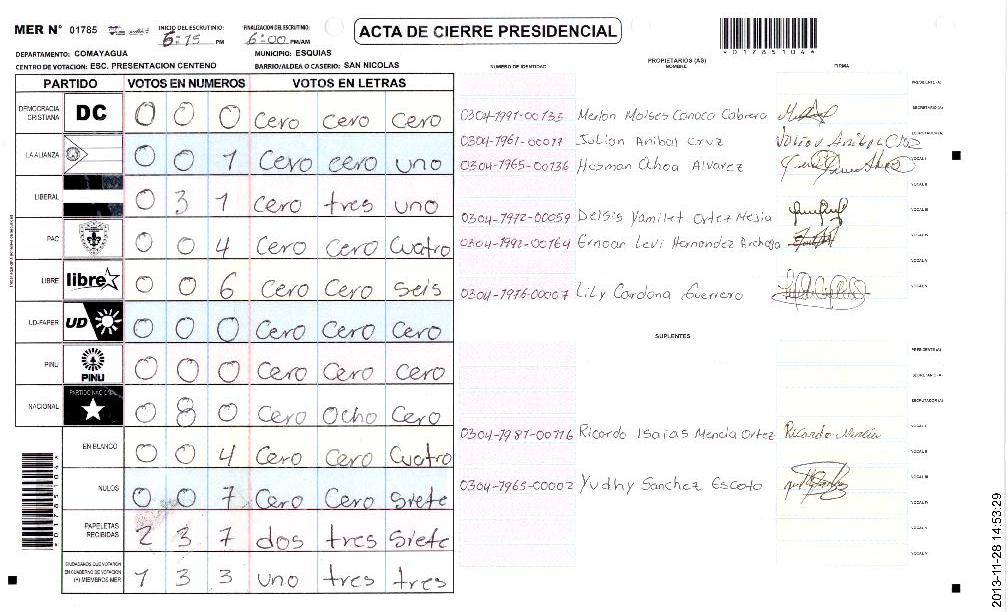 MER Nº 01785 INICIO DEL ESCRUTINIO: 5:15 PM FINALIZACION DEL ESCRUTINIO: 6:00 PM/AM
ACTA DE CIERRE PRESIDENCIAL
DEPARTAMENTO: COMAYAGUA MUNICIPIO: ESQUIAS
CENTRO DE VOTACION: ESC. PRESENTACION CENTENO BARRIO/ALDEA O CASERIO: SAN NICOLAS
PARTIDO VOTOS EN NUMEROS VOTOS EN LETRAS
DEMOCRACIA CRISTIANA DC 0 0 0 Cero cero cero
LA ALIANZA 0 0 1 Cero cero uno
LIBERAL 0 3 1 cero tres uno
PAC 0 0 4 Cero Cero Cuatro
LIBRE libre 0 0 6 Cero Cero seis
UD-FAPER UD 0 0 0 Cero Cero Cero
PINU PINU 0 0 0 Cero Cero cero
NACIONAL PARTIDO NACIONAL 0 8 0 Cero Ocho Cero
EN BLANCO 0 0 4 Cero Cero Cuatro
NULOS 0 0 7 Cero Cero Siete
PAPELETAS RECIBIDAS 2 3 7 dos tres Siete
CIUDADANOS QUE VOTARON EN CUADERNO DE VOTACION (+) MIEMBROS MER 1 3 3 uno tres tres
*01785104*
NUMERO DE IDENTIDAD PROPIETARIOS (AS) NOMBRE FIRMA
PRESIDENTE (A)
0304-1991-00135 Merlon Moises Canaca Cabrera SECRETARIO (A)
0304-1961-00077 Julian Anibal Cruz Julian Anibal Cruz ESCRUTADOR (A)
0304-1965-00136 Hosman Ochoa Alvarez VOCAL I
VOCAL II
0304-1972-00059 Delsis Yamilet Ortez Mejia VOCAL III
0304-1992-00164 Ernan Levi Hernandez Archaga VOCAL IV
VOCAL V
0304-1976-00007 Lily Cardona Guerrero
SUPLENTES
PRESIDENTE (A)
SECRETARIO (A)
ESCRUTADOR (A)
0304-1987-00116 Ricardo Isaias Mencia Ortez Ricardo Mencia VOCAL I
VOCAL II
0304-1965-00002 Yudhy Sanchez Escoto VOCAL III
VOCAL IV
VOCAL V
2013-11-28 14:53:29